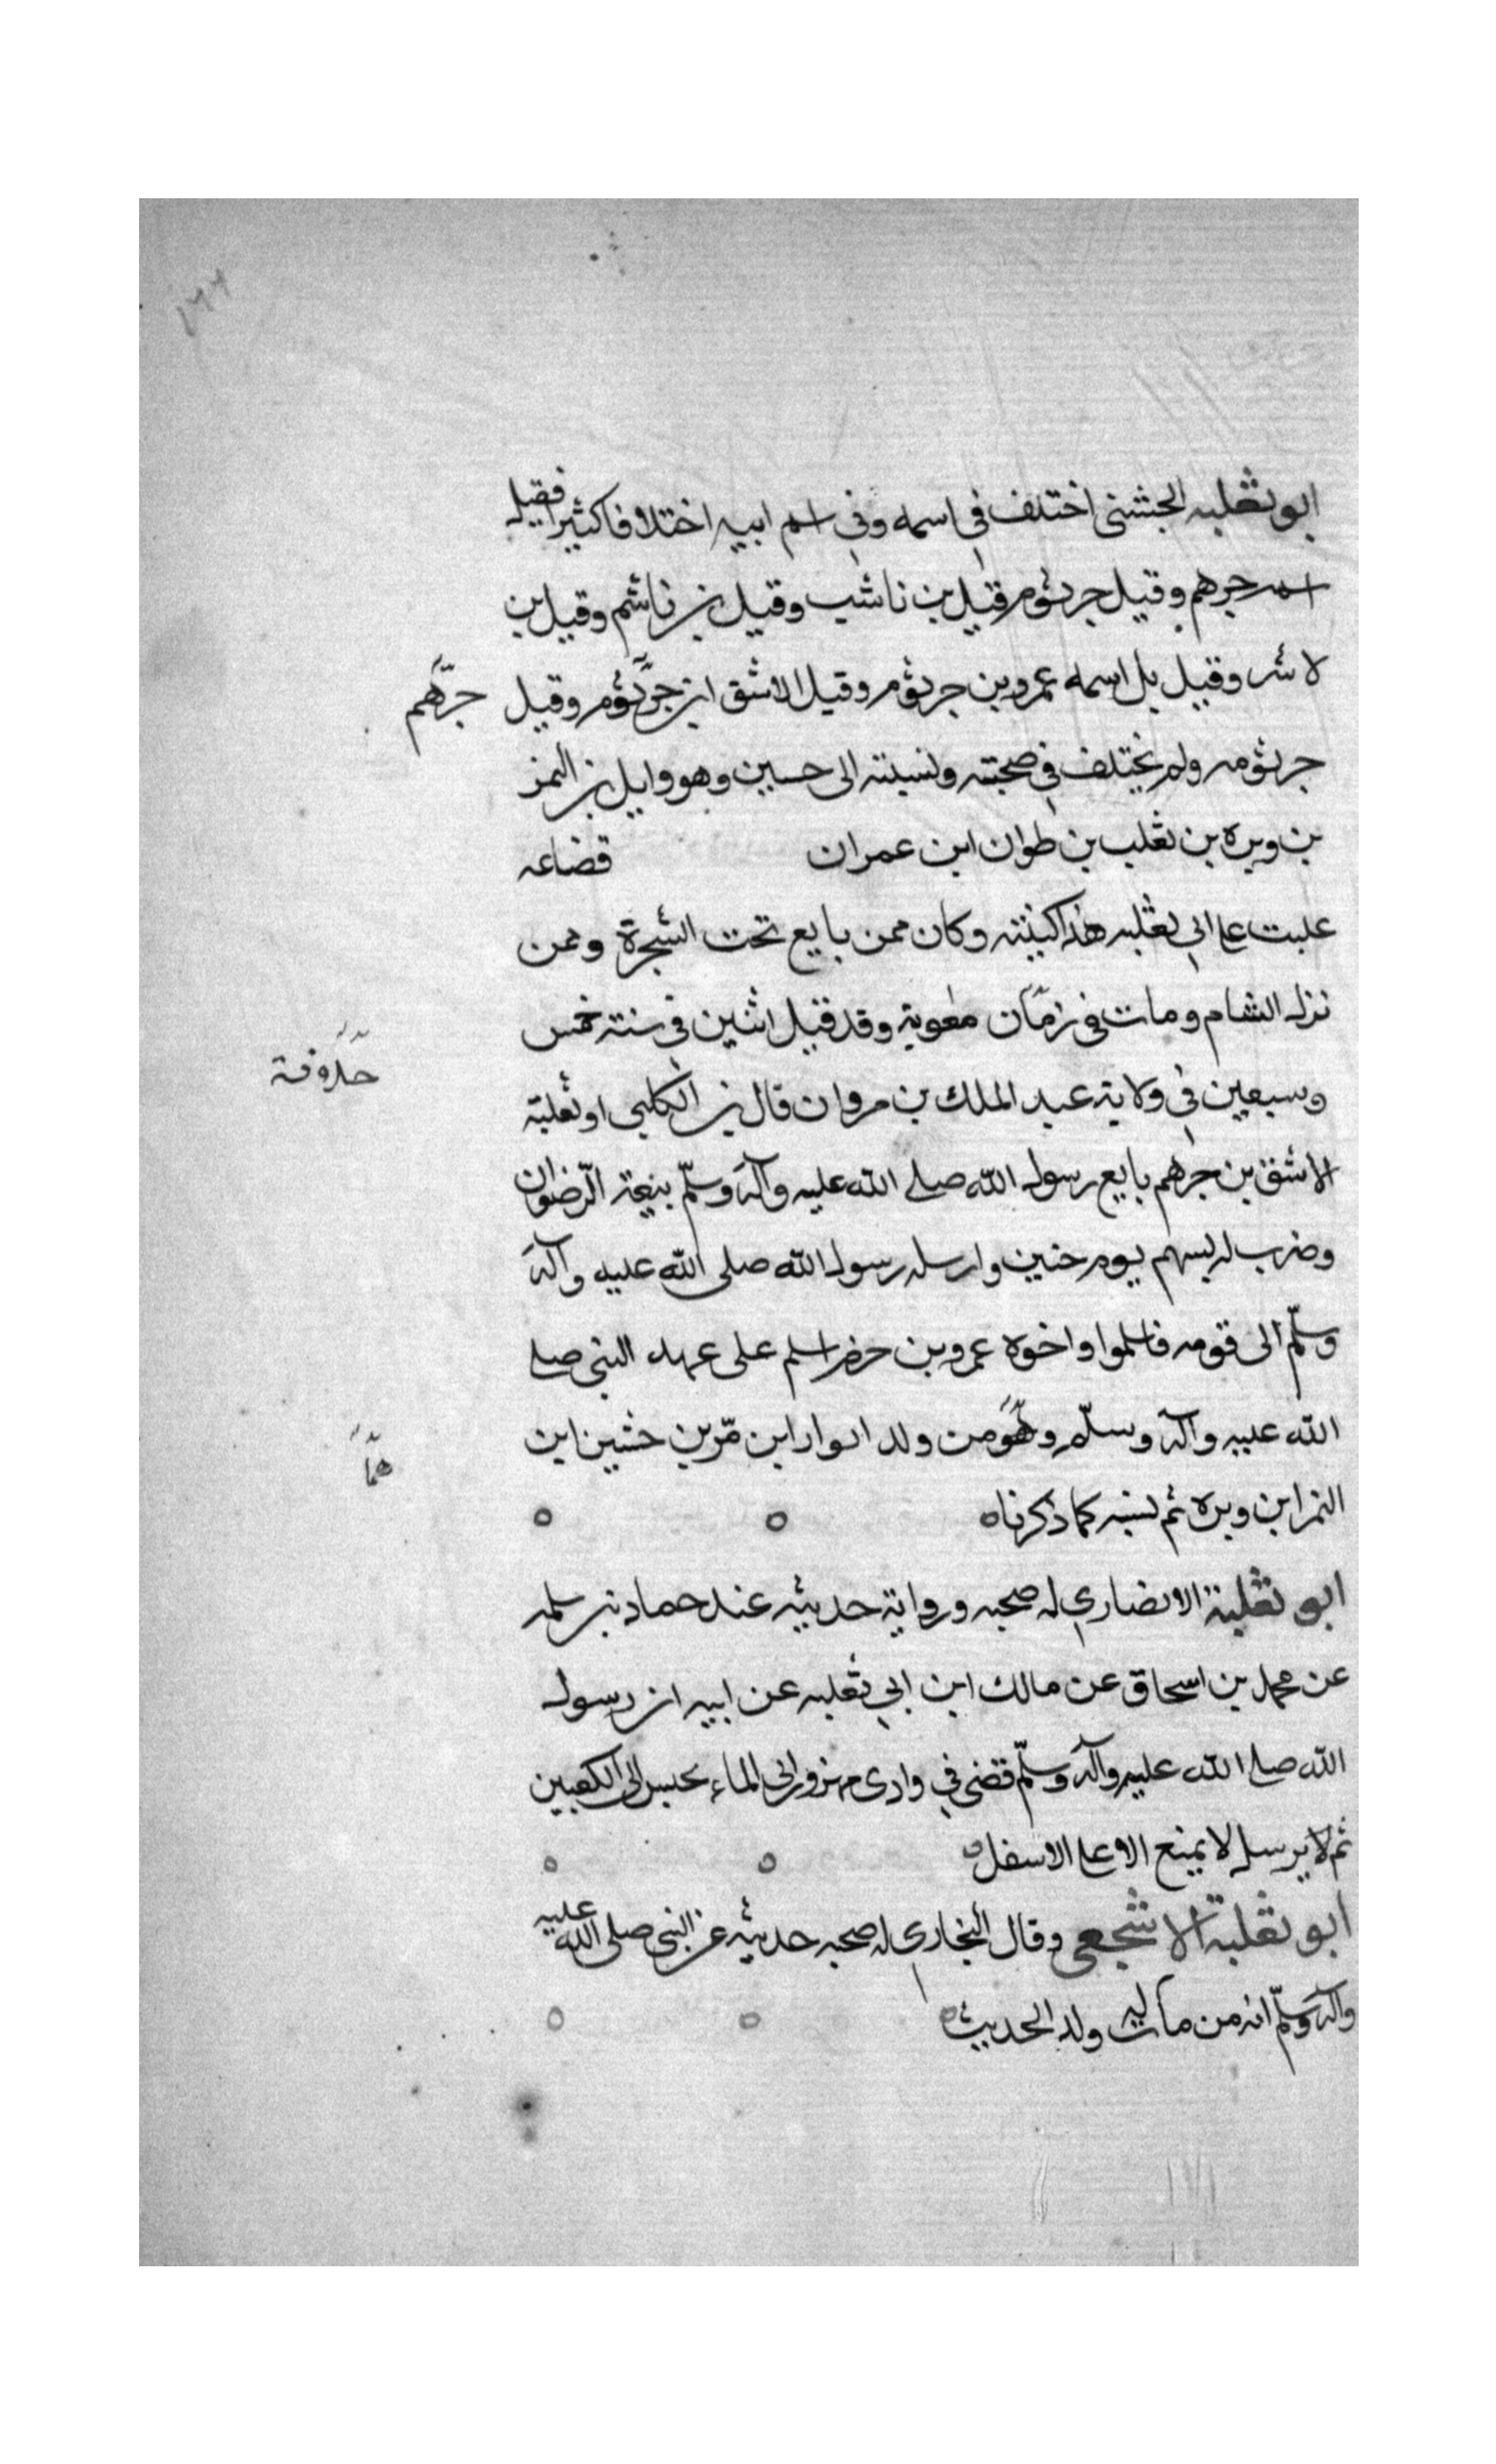 ١٢٢
ابو ثعلبه الجشنى اختلف في اسمه وفي اسم ابيه اختلافا كثيرا فقيل
اسمه جرهم وقيل جرثوم وقيل بن ناشب وقيل بن ناشم وقيل بن
لاشر وقيل بل اسمه عمرو بن جرثوم وقيل الاشق ابن جرثوم وقيل
جرهم
جرثومه ولم يختلف في صحبته ونسبته الى حسين وهو وايل بن النمر
بن وبره بن ثغلب بن طوان ابن عمران قضاعه
علبت على ابي ثعلبه هذا كنيته وكان ممن بايع تحت الشجرة وممن
نزل الشام ومات في زمان معوية وقد قيل اثنين في سنة خمس
خلافة
وسبعين في ولاية عبد الملك بن مروان قال بن الكلبي او ثعلبة
الاشق بن جرهم بايع رسول الله صلى الله عليه وآله وسلم بيعة الرضوان
وضرب له بسهم يوم حنين وارسله رسول الله صلى الله عليه وآله
وسلم الى قومه فاسلموا واخوه عمرو بن جرهم اسلم على عهد النبى صلى
الله عليه وآله وسلم وهو من ولد ابوار ابن مر بن خشين ابن
هما
النمر ابن وبره ثم نسبه كما ذكرناه
ابو ثعلبة الانصاري له صحبه ورواية حديثه عند حماد بن سلمه
عن محمد بن اسحاق عن مالك ابن ابي ثعلبه عن ابيه ان رسول
الله صلى الله عليه وآله وسلم قضى في وادى مهزور ان الماء يحبس الى الكعبين
ثم لا يرسل لا يمنع الاعلى الاسفل
ابو ثعلبة الاشجعى وقال البخاري له صحبه حديثه عن النبى صلى الله عليه
وآله وسلم انه من مات له ولد الحديث